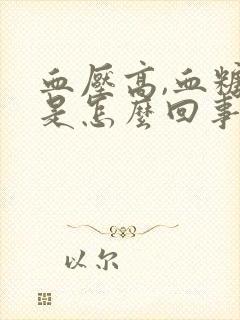 血壓高,血糖
是怎麼回事
以尔